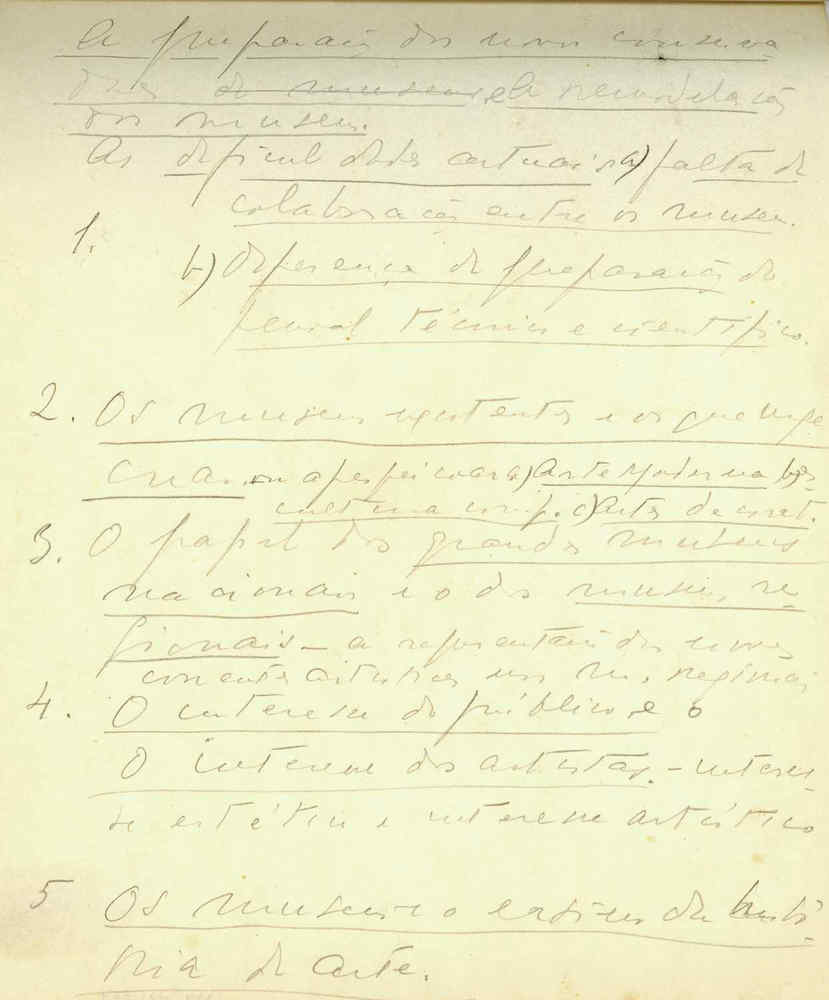 A preparação dos novos conserva
dores de museus, e a remodelação
dos museus.
As dificuldades actuais a) falta de
colaboração entre os museus.
1.
b) diferença de preparação do
pessoal técnico e científico.
2. Os museus existentes e os que urge
criar ou aperfeiçoar a) Arte Moderna b)
cultura comp. c) Artes decorat.
3. O papel dos grandes museus
nacionais e o dos museus re-
gionais - a representação das novas
correntes artísticas nos m. regionais
4. O interesse do público, e o
O interesse dos artistas. - interes-
se estético e interesse artístico
5 Os museus e o ensino da histó-
ria de arte.